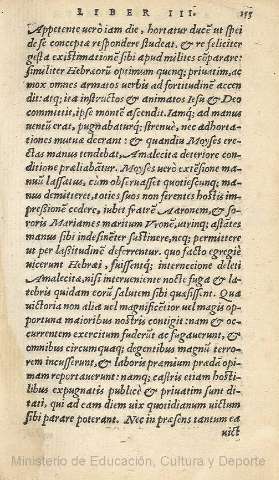 LIBER III.
155
Appetente verò iam die, hortatur ducẽ ut spei
de se conceptæ respondere studeat, & re feliciter
gesta existimationẽ sibi apud milites cõparare:
similiter Hebræorũ optimum quenq; priuatim, ac
mox omnes armatos uerbis ad fortitudinẽ accen
dit: atq; ita instructos & animatos Iesu & Deo
committit, ipse montẽ ascendit. Iamq; ad manus
uentũ erat, pugnabaturq; strenuè, nec adhorta-
tiones mutuæ deerant: & quandiu Moyses ere-
ctas manus tendebat, Amalecita deteriore con-
ditione præliabatur. Moyses verò extẽsione ma-
nuũ lassatus, cùm obseruasset quotiescunq; ma-
nus demitteret, toties suos non ferentes hostis im-
pressionẽ cedere, iubet fratrẽ Aaronem, & so-
roris Mariames maritum Vronẽ, utrinq; astãtes
manus sibi indesinẽter sustinere, necq; permittere
ut per lassitudinẽ deferrentur. quo facto egregiè
uicerunt Hebræi, fuissentq; internecione deleti
Amalecitæ, nisi interueniente nocte fuga & la-
tebris quidam eorũ salutem sibi quæsissent. Qua
uictoria non alia uel magnificẽtior uel magis op-
portuna maioribus nostris contigit: nam & oc-
currentem exercitum fuderũt ac fugauerunt, &
omnibus circumquaq; degentibus magnũ terro-
rem incusserunt, & laboris præmium prædã opi-
mam reportauerunt: namq; castris etiam hosti-
libus expugnatis publicè & priuatim sunt di-
tati, qui ad eam diem uix quotidianum uictum
sibi parare poterant. Nec in præsens tantum ea
uict
Ministerio de Educación, Cultura y Deporte